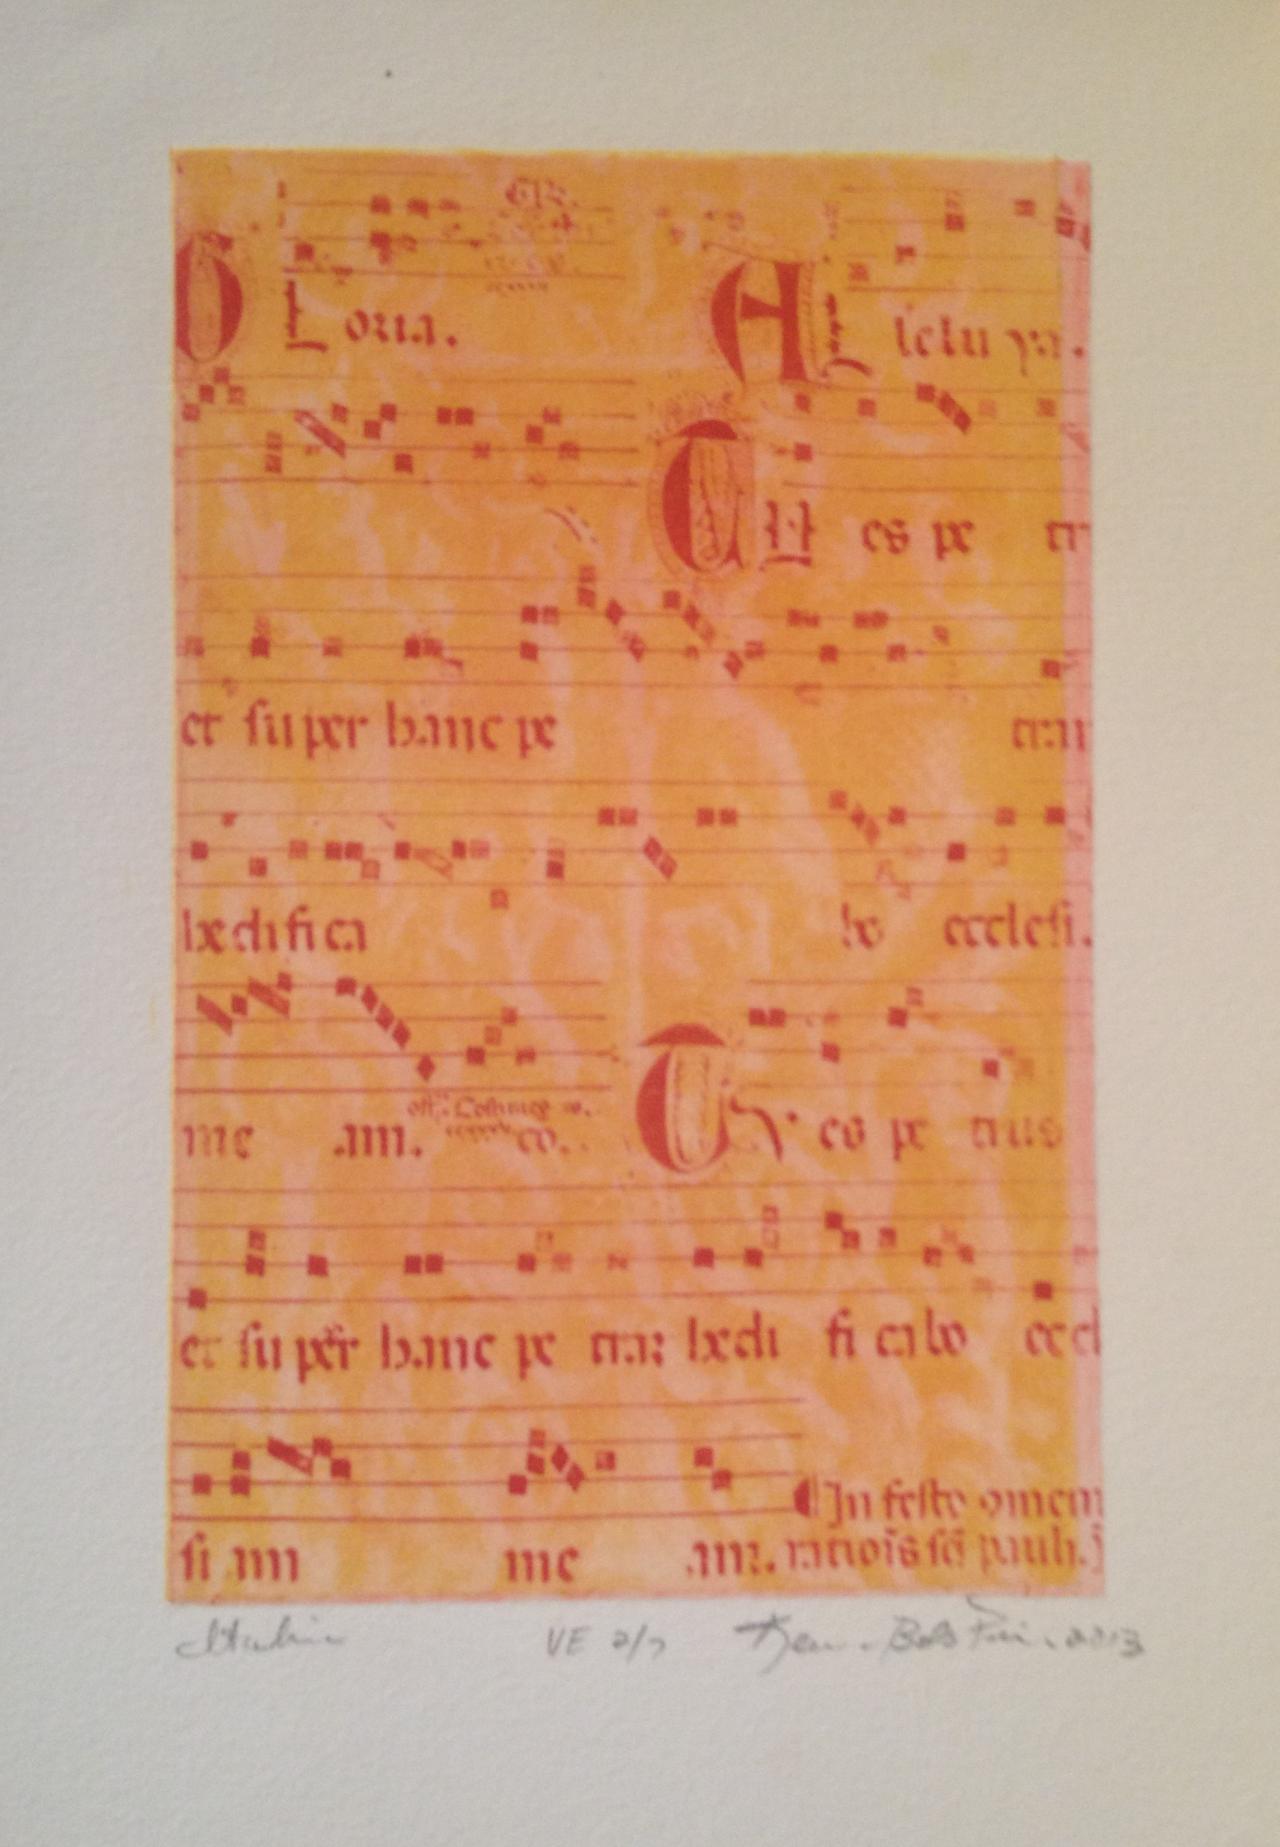 G L oria. A L lelu ya.
T U es pe tr
et super hanc pe tram
hedifica bo ecclesi.
me am. eo. T es pe trus
et super hanc pe tram hedi fi ca bo eccl
si am me am. In festo
pauli.
VE 2/7 2013